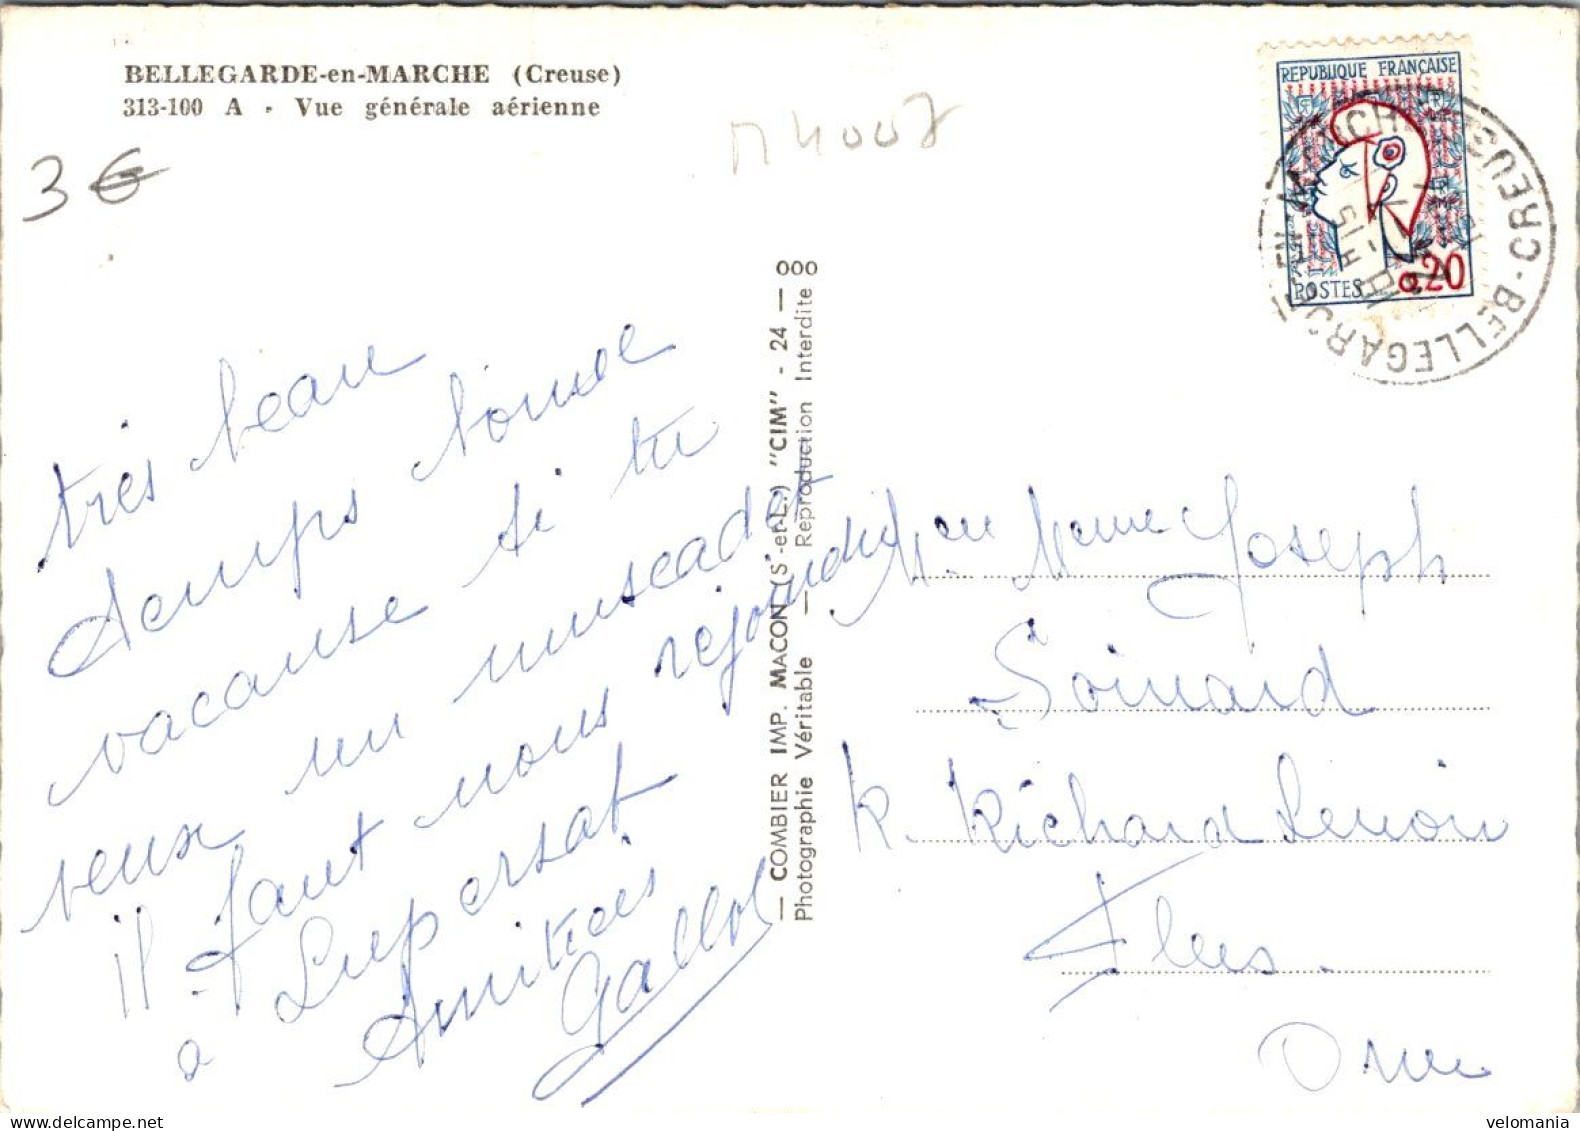 BELLEGARDE-en-MARCHE (Creuse)
313-100 A - Vue générale aérienne
3€
000
— COMBIER IMP. MACON (S.-et-L.) "CIM" - 24 —
Photographie Véritable — Reproduction Interdite
REPUBLIQUE FRANÇAISE
POSTES 0,20
BELLEGARDE-EN-MARCHE CREUSE
15 H
très beau
temps bonne
vacanse si tu
veux un muscadet
il faut nous rejoindre
a Lupersat
Amitiés
Gallot
Joseph
Soinard
R. Richard Lenoir
Flers.
Orne
velomania